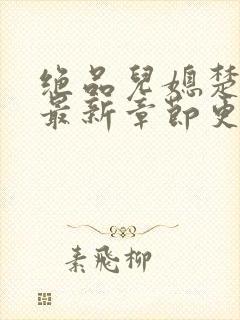 绝品儿媳楚
最新章节更
素飞柳